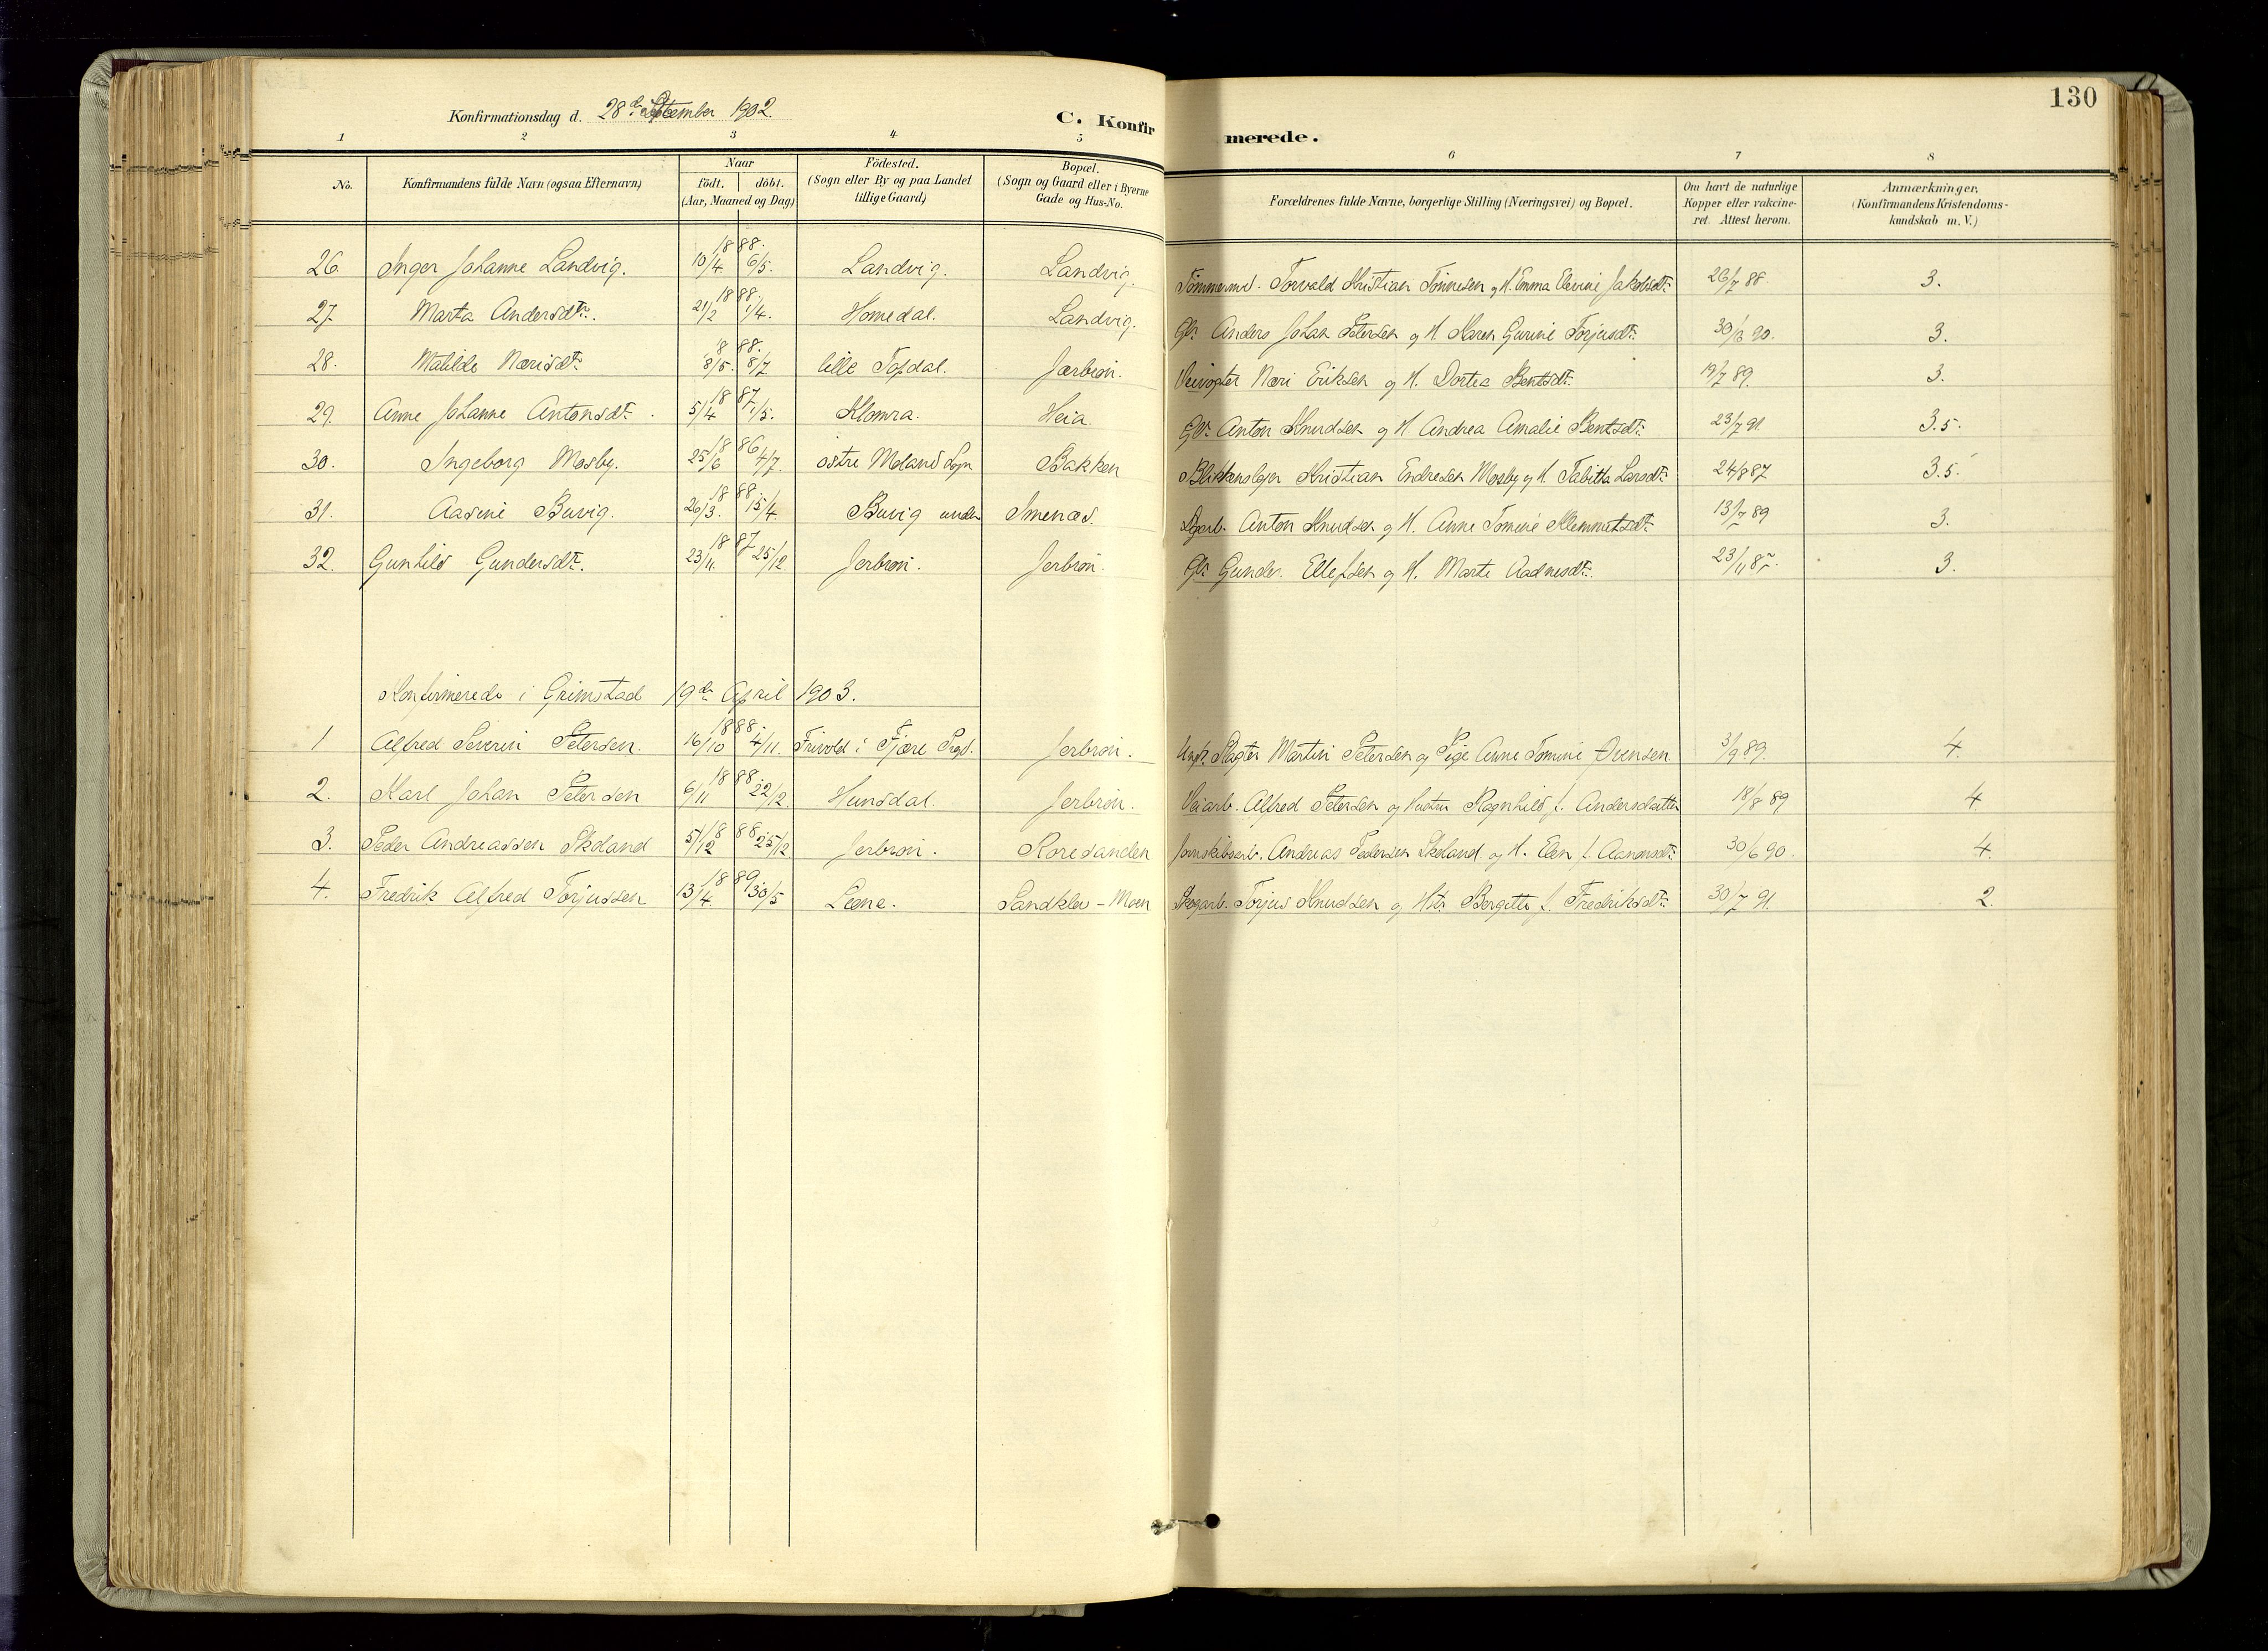 130
Konfirmationsdag d. 28de September 1902.
C. Konfirmerede.
1 2 3 4 5 6 7 8
No. Konfirmandens fulde Navn (ogsaa Efternavn) Naar födt. döbt. (Aar, Maaned og Dag) Födested. (Sogn eller By og paa Landet tillige Gaard) Bopæl. (Sogn og Gaard eller i Byerne Gade og Hus-No. Forældrenes fulde Navne, borgerlige Stilling (Næringsvei) og Bopæl. Om havt de naturlige Kopper eller vakcineret. Attest herom. Anmærkninger. (Konfirmandens Kristendomskundskab m. V.)
26. Inger Johanne Landvig. 1888. 10/4 6/5. Landvig. Landvig. Tømmermd. Torvald Kristian Tønnesen og H. Emma Elevine Jakobsdtr. 26/7 88. 3.
27. Marta Andersdtr. 1888. 21/2 1/4. Homedal. Landvig. Gbr. Anders Johan Petersen og H. Karen Gurine Torjusdtr. 90. 3.
28. Matilde Nærisdtr. 1888. 8/5. 8/7 lille Topdal. Jærbron. Veivogter Næri Eriksen og H. Dortea Bentsdtr. 19/7 89. 3.
29. Anne Johanne Antonsdtr. 1887. 5/4 1/5. Klomra. Heia. Gbr. Anton Knudsen og H. Andrea Amalie Bentsdtr. 23/7 91. 3.5.
30. Ingeborg Mosby. 1886 25/6 4/7. östre Moland Sogn Bakken Blikkenslager Kristian Endresen Mosby og H. Tabitha Larsdtr. 24/8 87 3.5.
31. Aasine Buvig. 1888. 26/3. 15/4. Buvig under Smenæs. Anton Knudsen og H. Anne Tomine Klemmetsdtr. 13/7 89 3.
32. Gunhild Gundersdtr. 1887 23/11. 25/12. Jerbron. Jerbron. Gbr. Gunder Ellefsen og H. Marte Aadnesdtr. 23/11 3.
Konfirmerede i Grimstad 19de April 1903.
1 Alfred Severin Petersen. 1888. 16/10 4/11. Frivold i Fjære Prgd. Jerbron. Ungk. Slagter Martin Petersen og Pige Anne Tomine Evensen 3/9 89. 4.
2. Karl Johan Petersen 1888. 6/11 22/12. Hunsdal. Jerbron. Veiarb. Alfred Petersen og Hustru Ragnhild f. Andersdatter 18/8 89 4
3. Peder Andreassen Skoland 1888 5/12 25/12 Jerbron. Roresanden Andreas Pedersen Skoland og H. Elen f. Aanonsdtr. 30/6 90. 4.
4. Fredrik Alfred Torjussen 1889. 13/4. 30/5 Leene. Sandklev - Moen Skogarb. Torjus Knudsen og Hst. Bergitte f. Fredriksdtr. 30/7 91. 2.